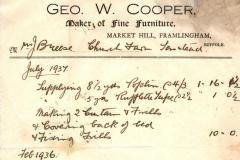 GEO. W. COOPER,
Maker of Fine Furniture.
MARKET HILL, FRAMLINGHAM,
SUFFOLK.
Mr J Breese Church Farm
July 1937
Supplying 8½ yds Poplin @ 4/3 1-16-
yds Rufflette Tape
Making 2 Curtains & Frills
& Covering back of bed
& Fixing Frills 10-0
Feb 1936